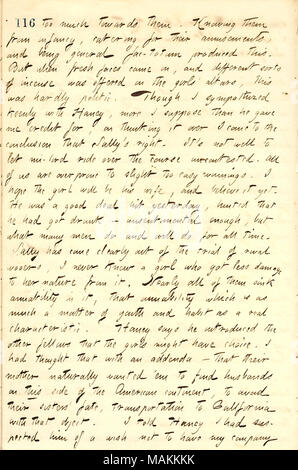 116 too much towards them. Knowing them
from infancy, catering for their amusements,
and being general fac-totum produced this.
But when fresh faces came in, and different sorts
of incense was offered on the girls altars, this
was hardly politic. Though I sympathized
keenly with Haney, more I suppose than he gave
me credit for, on thinking it over I came to the
conclusion that Sally's right. It's not well to
let mi-lord ride over the course uncontested. All
of us are over prone to slight too easy winnings. I
hope the girl will be his wife, and believe it yet.
He was a good deal hit yesterday, hinted that
he had got drunk — enough, but
what many men do and will do for all time.
Sally has come clearly out of the trial of rival
wooers, I never knew a girl who got less damage
to her nature from it. Nearly all of them sink
amiability in it, that amiability which is as
much a matter of youth and habit as a real
characteristic. Haney says he introduced the
other fellows that the girls might have choice. I
had thought that with an addenda — that their
mother naturally wanted 'em to find husbands
on this side of the American continent, to avoid
their sisters fate, transportation to California
with that object. I told Haney I had sus-
pected him of a wish not to have my company
alamy
Image ID: MAKKKK
www.alamy.com